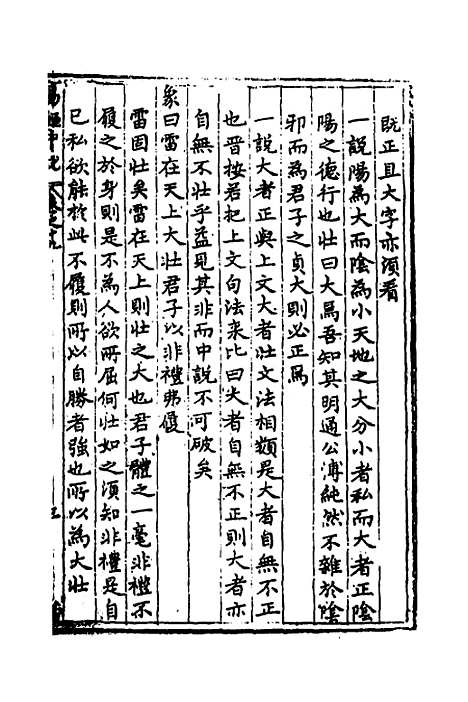 既正且大字亦須看
一說陽為大而陰為小天地之大分小者私而大者正陰
陽之德行也壯曰大焉吾知其明通公溥純然不雜於陰
邪而為君子之貞大則必正焉
一說大者正與上文大者壯文法相類是大者自無不正
也晉按若把上文句法來比曰大者自無不正則大者亦
自無不壯乎益見其非而中說不可破矣
象曰雷在天上大壯君子以非禮弗履
雷固壯矣雷在天上則壯之大也君子體之一毫非禮不
履之於身則是不為人欲所屈何壯如之須知非禮是自
已私欲能於此不履則所以自勝者強也所以為大壯
易經中說